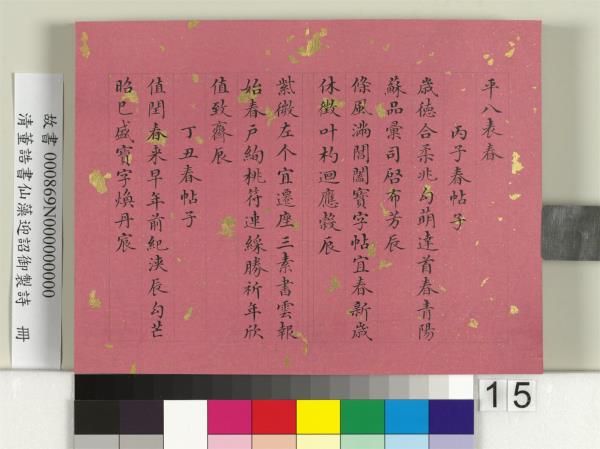 平八表春
丙子春帖子
歲德合柔兆勾萌達首春青陽
蘇品彙司啓布芳辰
條風滿閶闔寶字帖宜春新歲
休徵叶朽迴應穀辰
紫微左个宜遷座三素書雲報
始春戶絢桃符連綵勝祈年欣
值致齋辰
丁丑春帖子
值閏春来早年前紀浹辰勾芒
昭巳盛寶字煥丹宸
故書 000869N000000000
清董誥書仙藻迎詔御製詩 冊
15